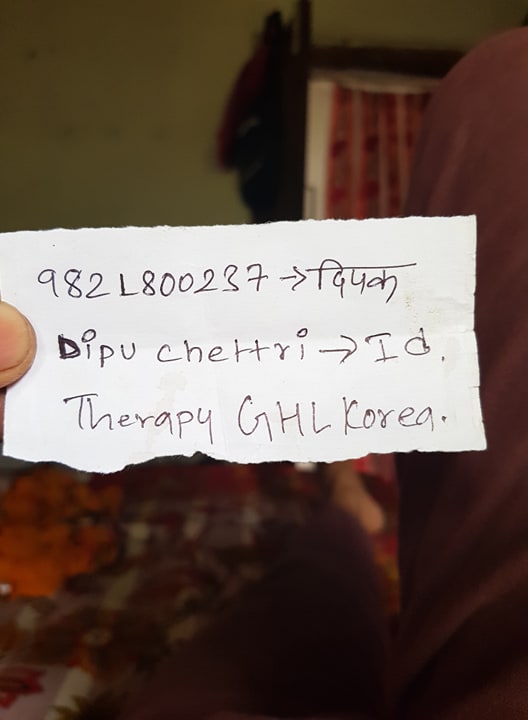 9821800237 → दिपक
Dipu chettri → Id.
Therapy GHL Korea.